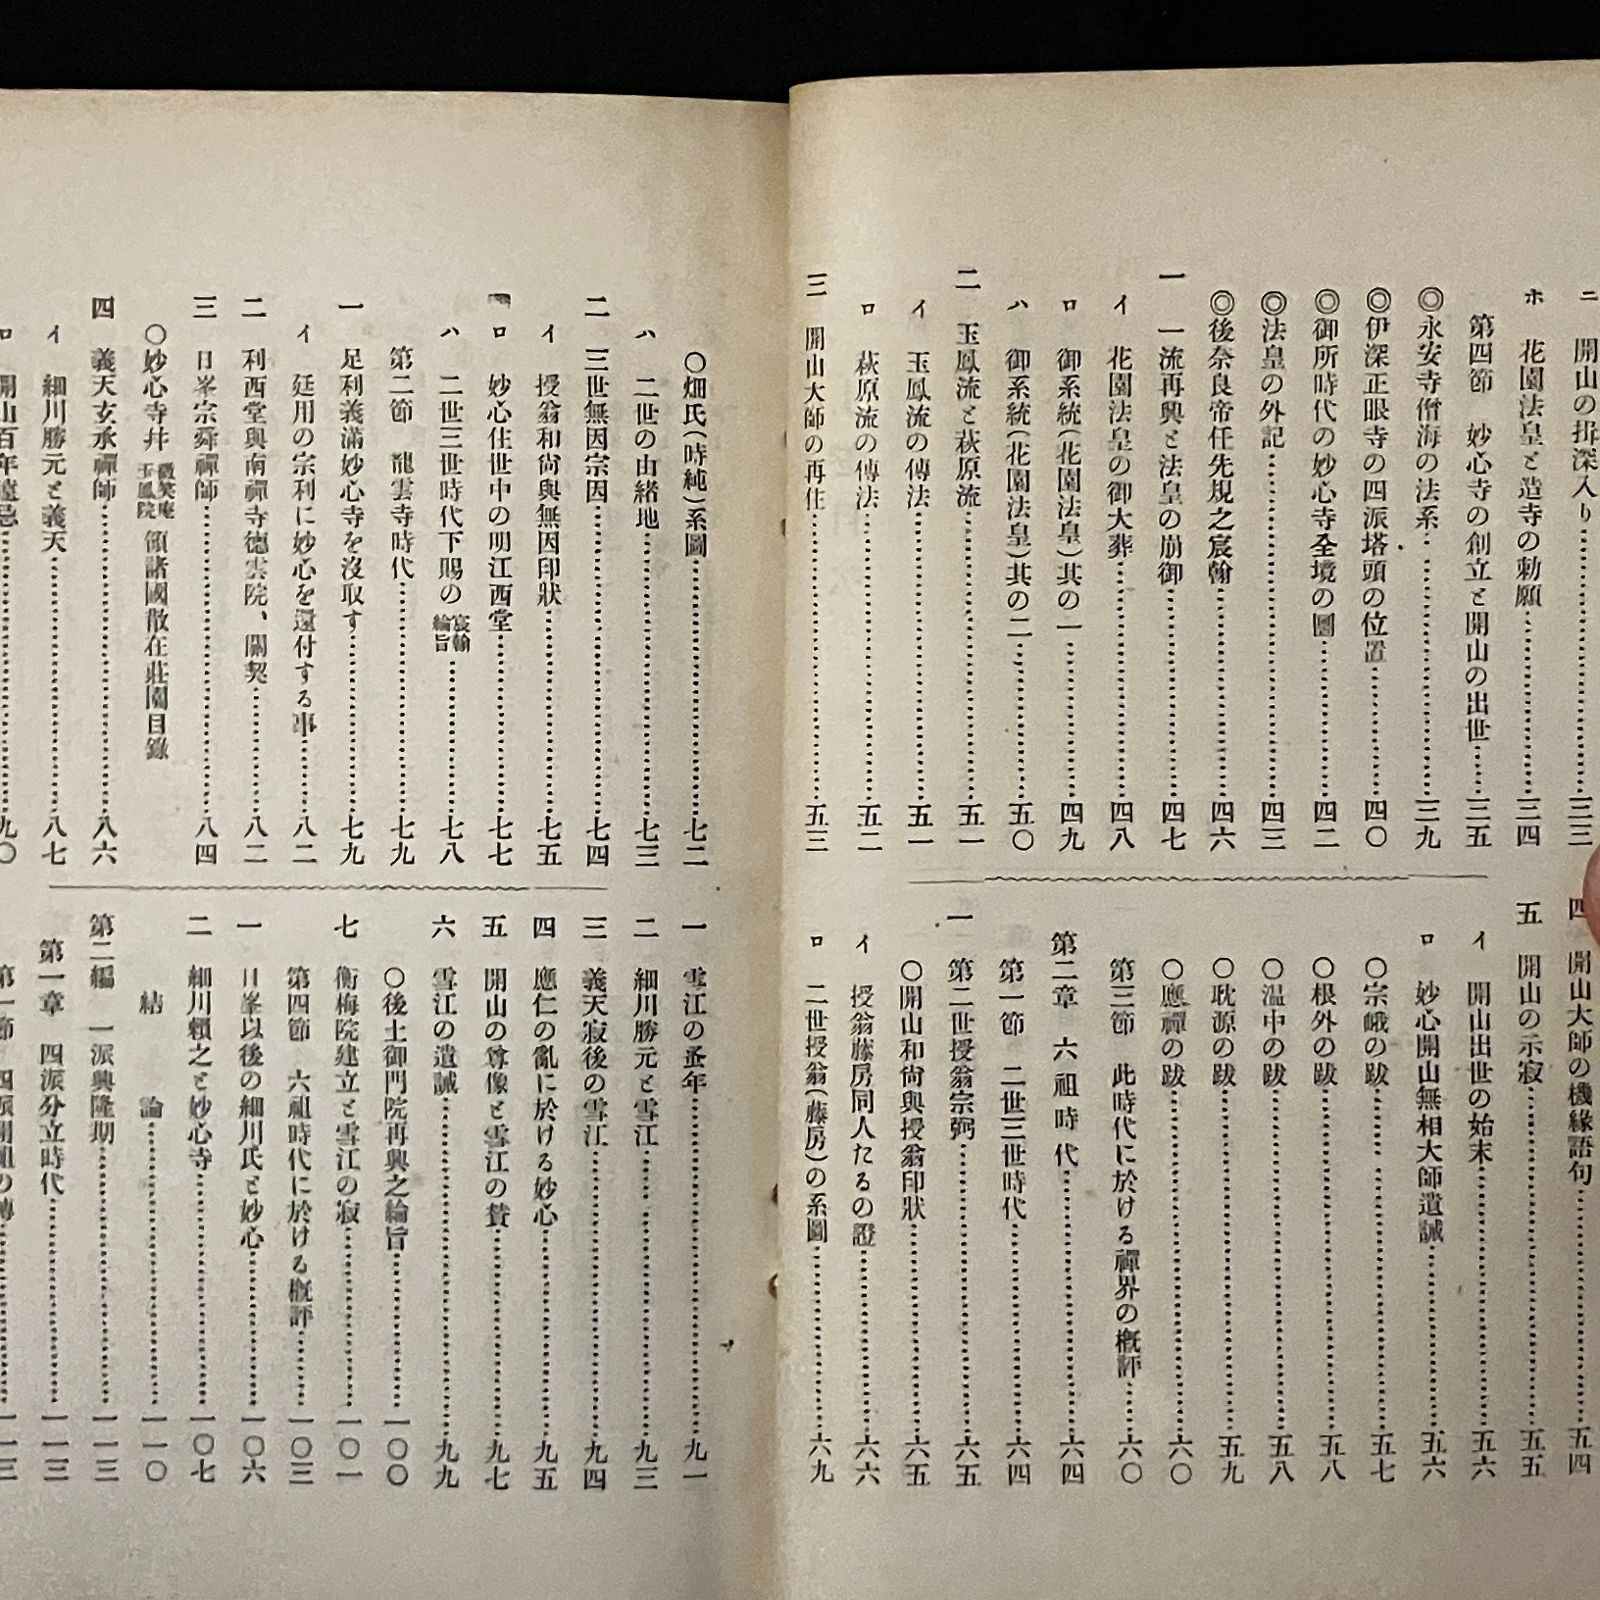 ニ 開山の揖深入り……三三
ホ 花園法皇と造寺の勅願……三四
第四節 妙心寺の創立と開山の出世……三五
◎永安寺僧海の法系……三九
◎伊深正眼寺の四派塔頭の位置……四〇
◎御所時代の妙心寺全境の圖……四二
◎法皇の外記……四三
◎後奈良帝任先規之宸翰……四六
一 一流再興と法皇の崩御……四七
イ 花園法皇の御大葬……四八
ロ 御系統(花園法皇)其の一……四九
ハ 御系統(花園法皇)其の二……五〇
二 玉鳳流と萩原流……五一
イ 玉鳳流の傳法……五一
ロ 萩原流の傳法……五二
三 開山大師の再住……五三
四 開山大師の機緣語句……五四
五 開山の示寂……五五
イ 開山出世の始末……五六
ロ 妙心開山無相大師遺誡……五六
〇宗峨の跋……五七
〇根外の跋……五八
〇温中の跋……五八
〇耽源の跋……五九
〇應禪の跋……六〇
第三節 此時代に於ける禪界の槪評……六〇
第二章 六祖時代……六四
第一節 二世三世時代……六四
一 第二世授翁宗弼……六五
〇開山和尙與授翁印狀……六五
イ 授翁藤房同人たるの證……六六
ロ 二世授翁(藤房)の系圖……六九
〇畑氏(時純)系圖……七二
ハ 二世の由緒地……七三
二 三世無因宗因……七四
イ 授翁和尙與無因印狀……七五
ロ 妙心住世中の明江西堂……七七
ハ 二世三世時代下賜の宸翰綸旨……七八
第二節 龍雲寺時代……七九
一 足利義滿妙心寺を沒取す……七九
イ 廷用の宗利に妙心を還付する事……八二
二 利西堂與南禪寺德雲院、關契……八二
三 日峯宗舜禪師……八四
〇妙心寺幷微笑庵玉鳳院領諸國散在莊園目錄
四 義天玄承禪師……八六
イ 細川勝元と義天……八七
ロ 開山百年遠忌……九〇
一 雪江の蚤年……九一
二 細川勝元と雪江……九三
三 義天寂後の雪江……九四
四 應仁の亂に於ける妙心……九五
五 開山の尊像と雪江の贊……九七
六 雪江の遺誡……九九
〇後土御門院再興之綸旨……一〇〇
七 衡梅院建立と雪江の寂……一〇一
第四節 六祖時代に於ける槪評……一〇三
一 日峯以後の細川氏と妙心……一〇六
二 細川賴之と妙心寺……一〇七
結論……一一〇
第二編 一派興隆期……一一三
第一章 四派分立時代……一一三
第一節 四派開祖の傳……一一三